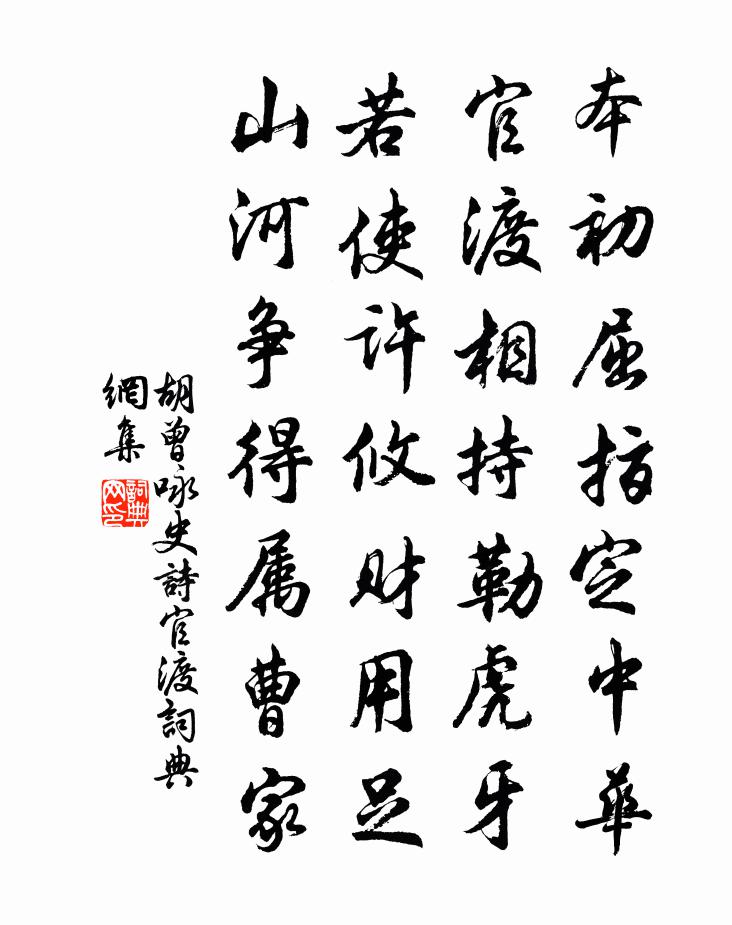 本初屈指定中華
官渡相持勒虎牙
若使許攸財用足
山河争得属曹家
胡曾咏史詩官渡詞典
網集
詞典網印